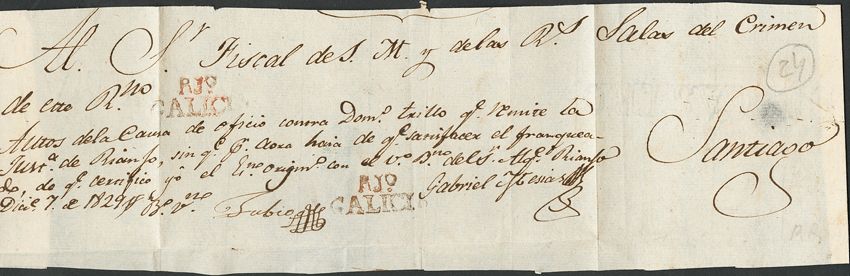 Al. Sr. Fiscal de S. M. y de las Rs. Salas del Crimen
24
de este Rno.
RJO
GALICIA
Autos de la Causa de oficio contra Domo. trillo qe. remite la
Justa. de Rianjo, sin qe. pr. aora haia de qe. satisfacer el franquea-
do, de qe. certifico yo el Eno. origino. con el vo. Bno. del Sr. Alce. Rianjo
Dice. 7. de 1829
Bo. vno.
Tubio
RJO
GALICIA
Gabriel Mesias
Santiago